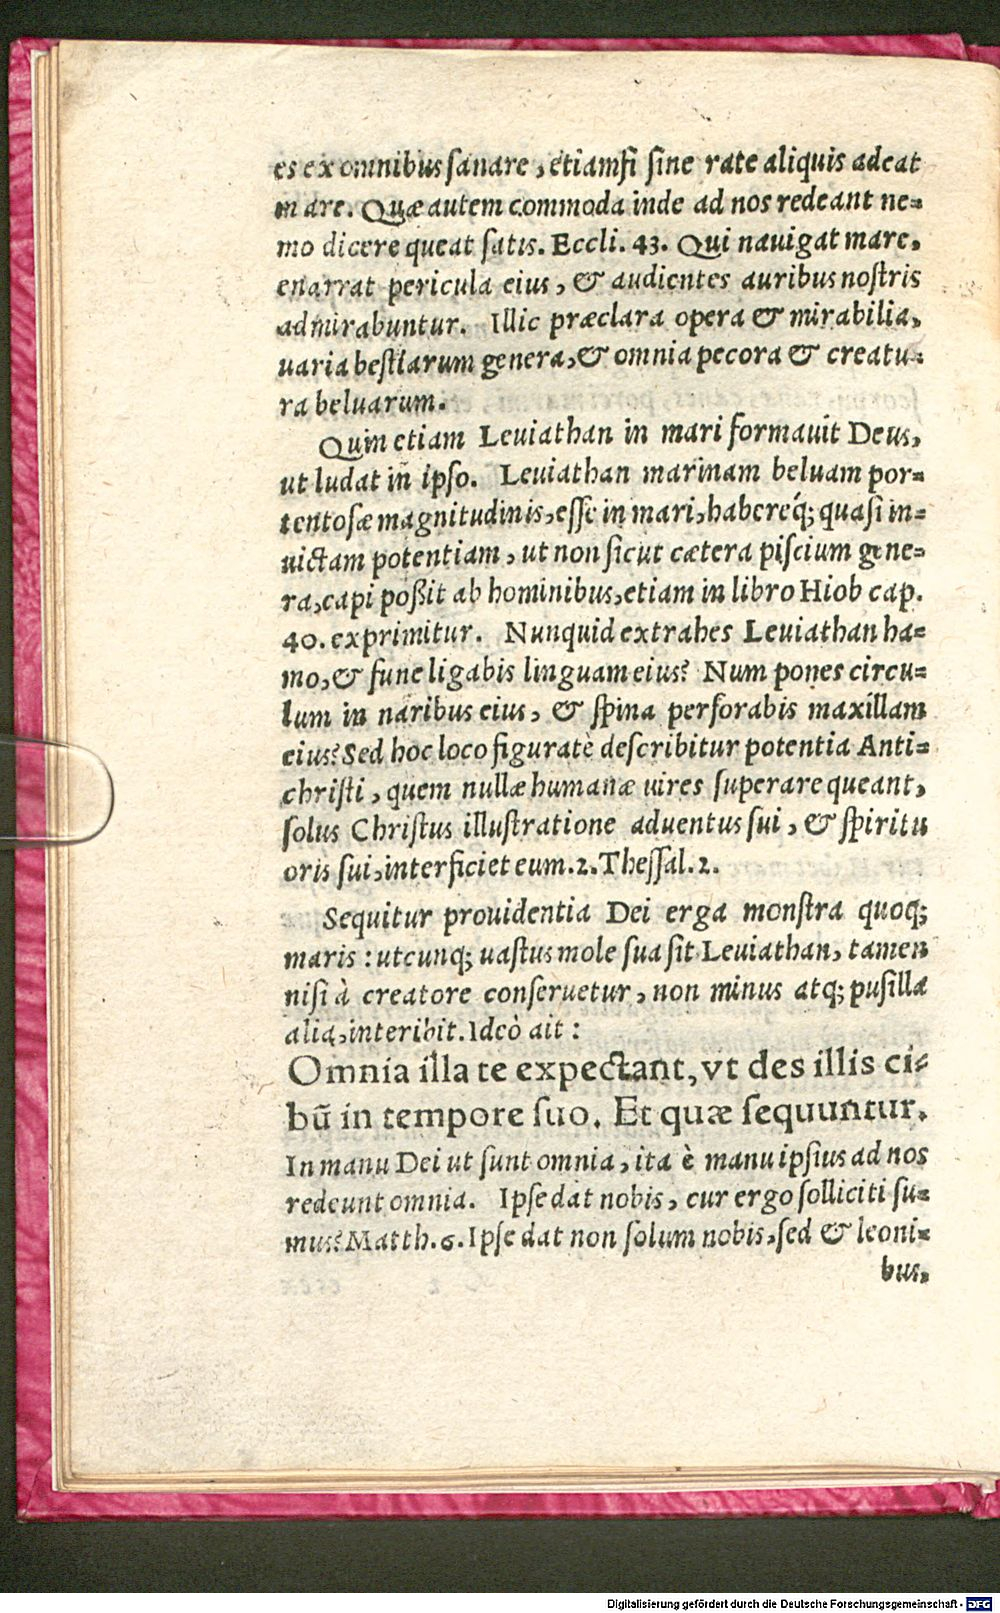 es ex omnibus sanare, etiamsi sine rate aliquis adeat
mare. Quæ autem commoda inde ad nos redeant ne=
mo dicere queat satis. Eccli. 43. Qui nauigat mare,
enarrat pericula eius, & audientes auribus nostris
admirabuntur. Illic præclara opera & mirabilia,
uaria bestiarum genera, & omnia pecora & creatu=
ra beluarum.
Quin etiam Leuiathan in mari formauit Deus,
ut ludat in ipso. Leuiathan marinam beluam por=
tentosæ magnitudinis, esse in mari, haberéq; quasi in=
uictam potentiam, ut non sicut cætera piscium gene=
ra, capi poßit ab hominibus, etiam in libro Hiob cap.
40. exprimitur. Nunquid extrahes Leuiathan ha=
mo, & fune ligabis linguam eius? Num pones circu=
lum in naribus eius, & spina perforabis maxillam
eius? Sed hoc loco figurate describitur potentia Anti=
christi, quem nullæ humanæ uires superare queant,
solus Christus illustratione aduentus sui, & spiritu
oris sui, interficiet eum. 2. Thessal. 2.
Sequitur prouidentia Dei erga monstra quoq;
maris: utcunq; uastus mole sua sit Leuiathan, tamen
nisi à creatore conseruetur, non minus atq; pusilla
alia, interibit. Ideò ait:
Omnia illa te expectant, vt des illis ci-
bũ in tempore suo. Et quæ sequuntur.
In manu Dei ut sunt omnia, ita è manu ipsius ad nos
redeunt omnia. Ipse dat nobis, cur ergo solliciti su=
mus? Matth. 6. Ipse dat non solum nobis, sed & leoni=
bus,
Digitalisierung gefördert durch die Deutsche Forschungsgemeinschaft - DFG